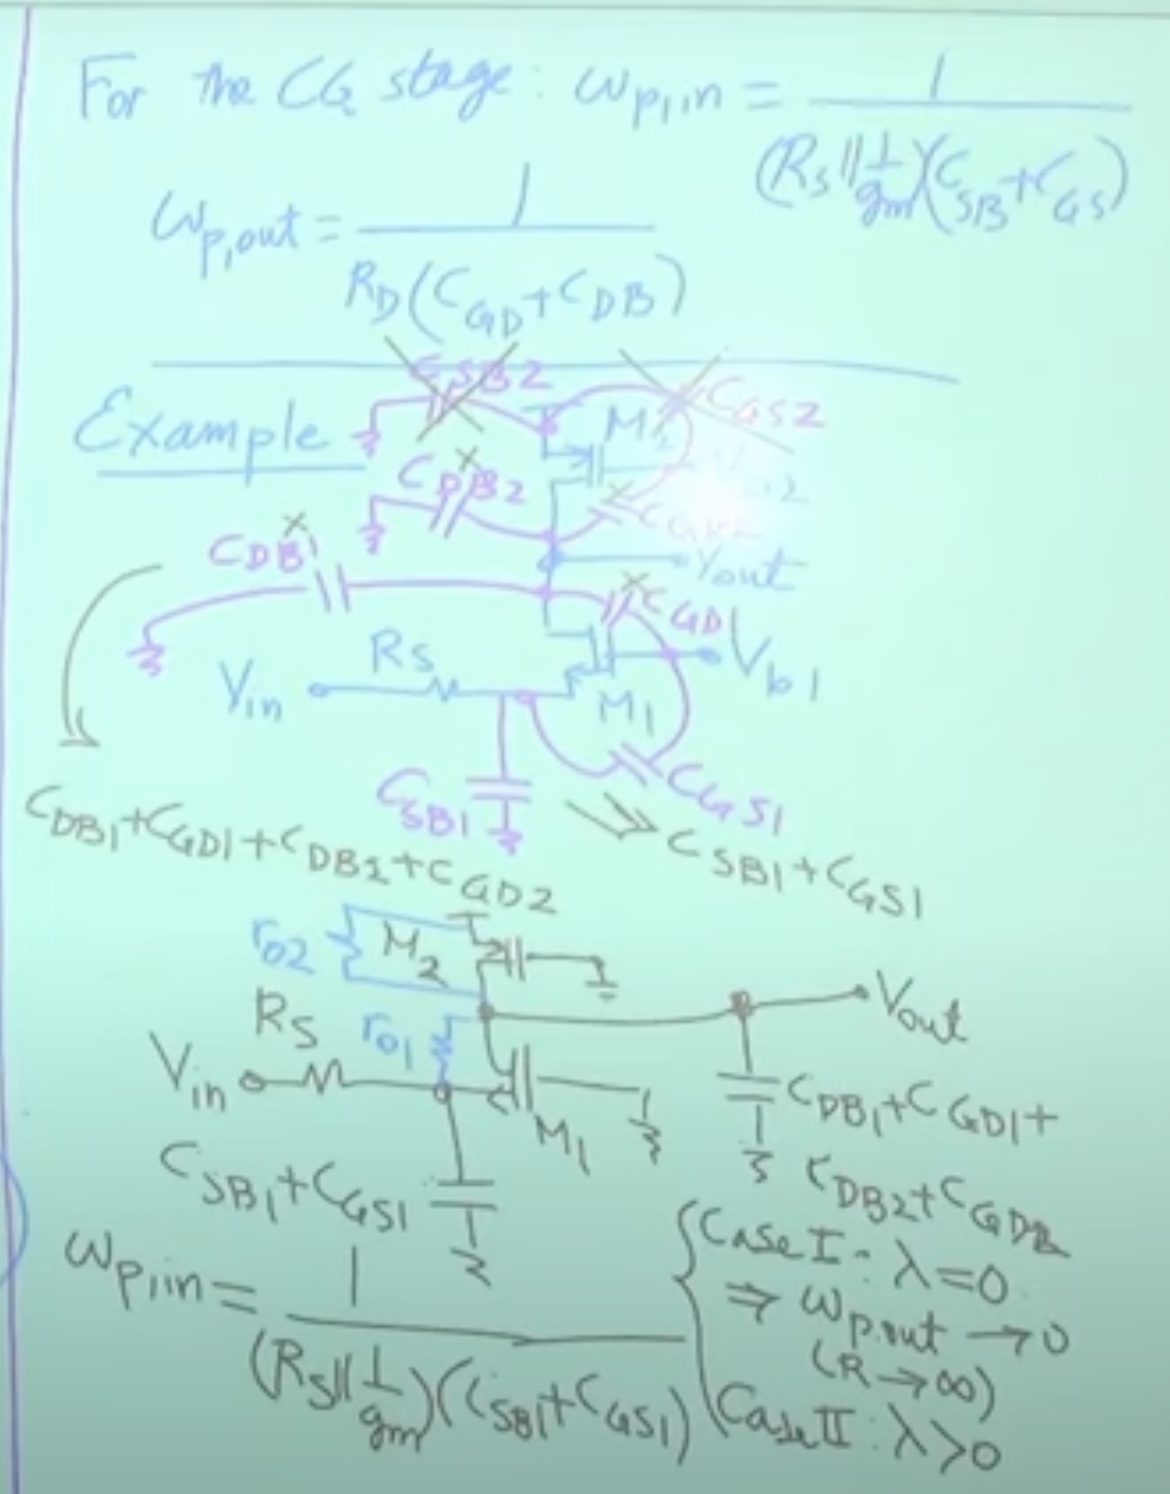 For the CG stage: ωp,in = 1 / (Rs || 1/gm)(CSB + CGS)
ωp,out = 1 / RD(CGD + CDB)
Example
CSB2
M2
CGS2
CDB2
CDB1
Vout
CGD1
Rs
Vin
Vb1
M1
CSB1
CGS1
CDB1+CGD1+CDB2+CGD2
CSB1+CGS1
ro2
M2
Rs
ro1
Vout
Vin
M1
CDB1+CGD1+
CDB2+CGD2
CSB1+CGS1
ωp,in = 1 / (Rs || 1/gm)(CSB1+CGS1)
Case I: λ=0
⇒ ωp.out → 0
(R → ∞)
Case II: λ>0